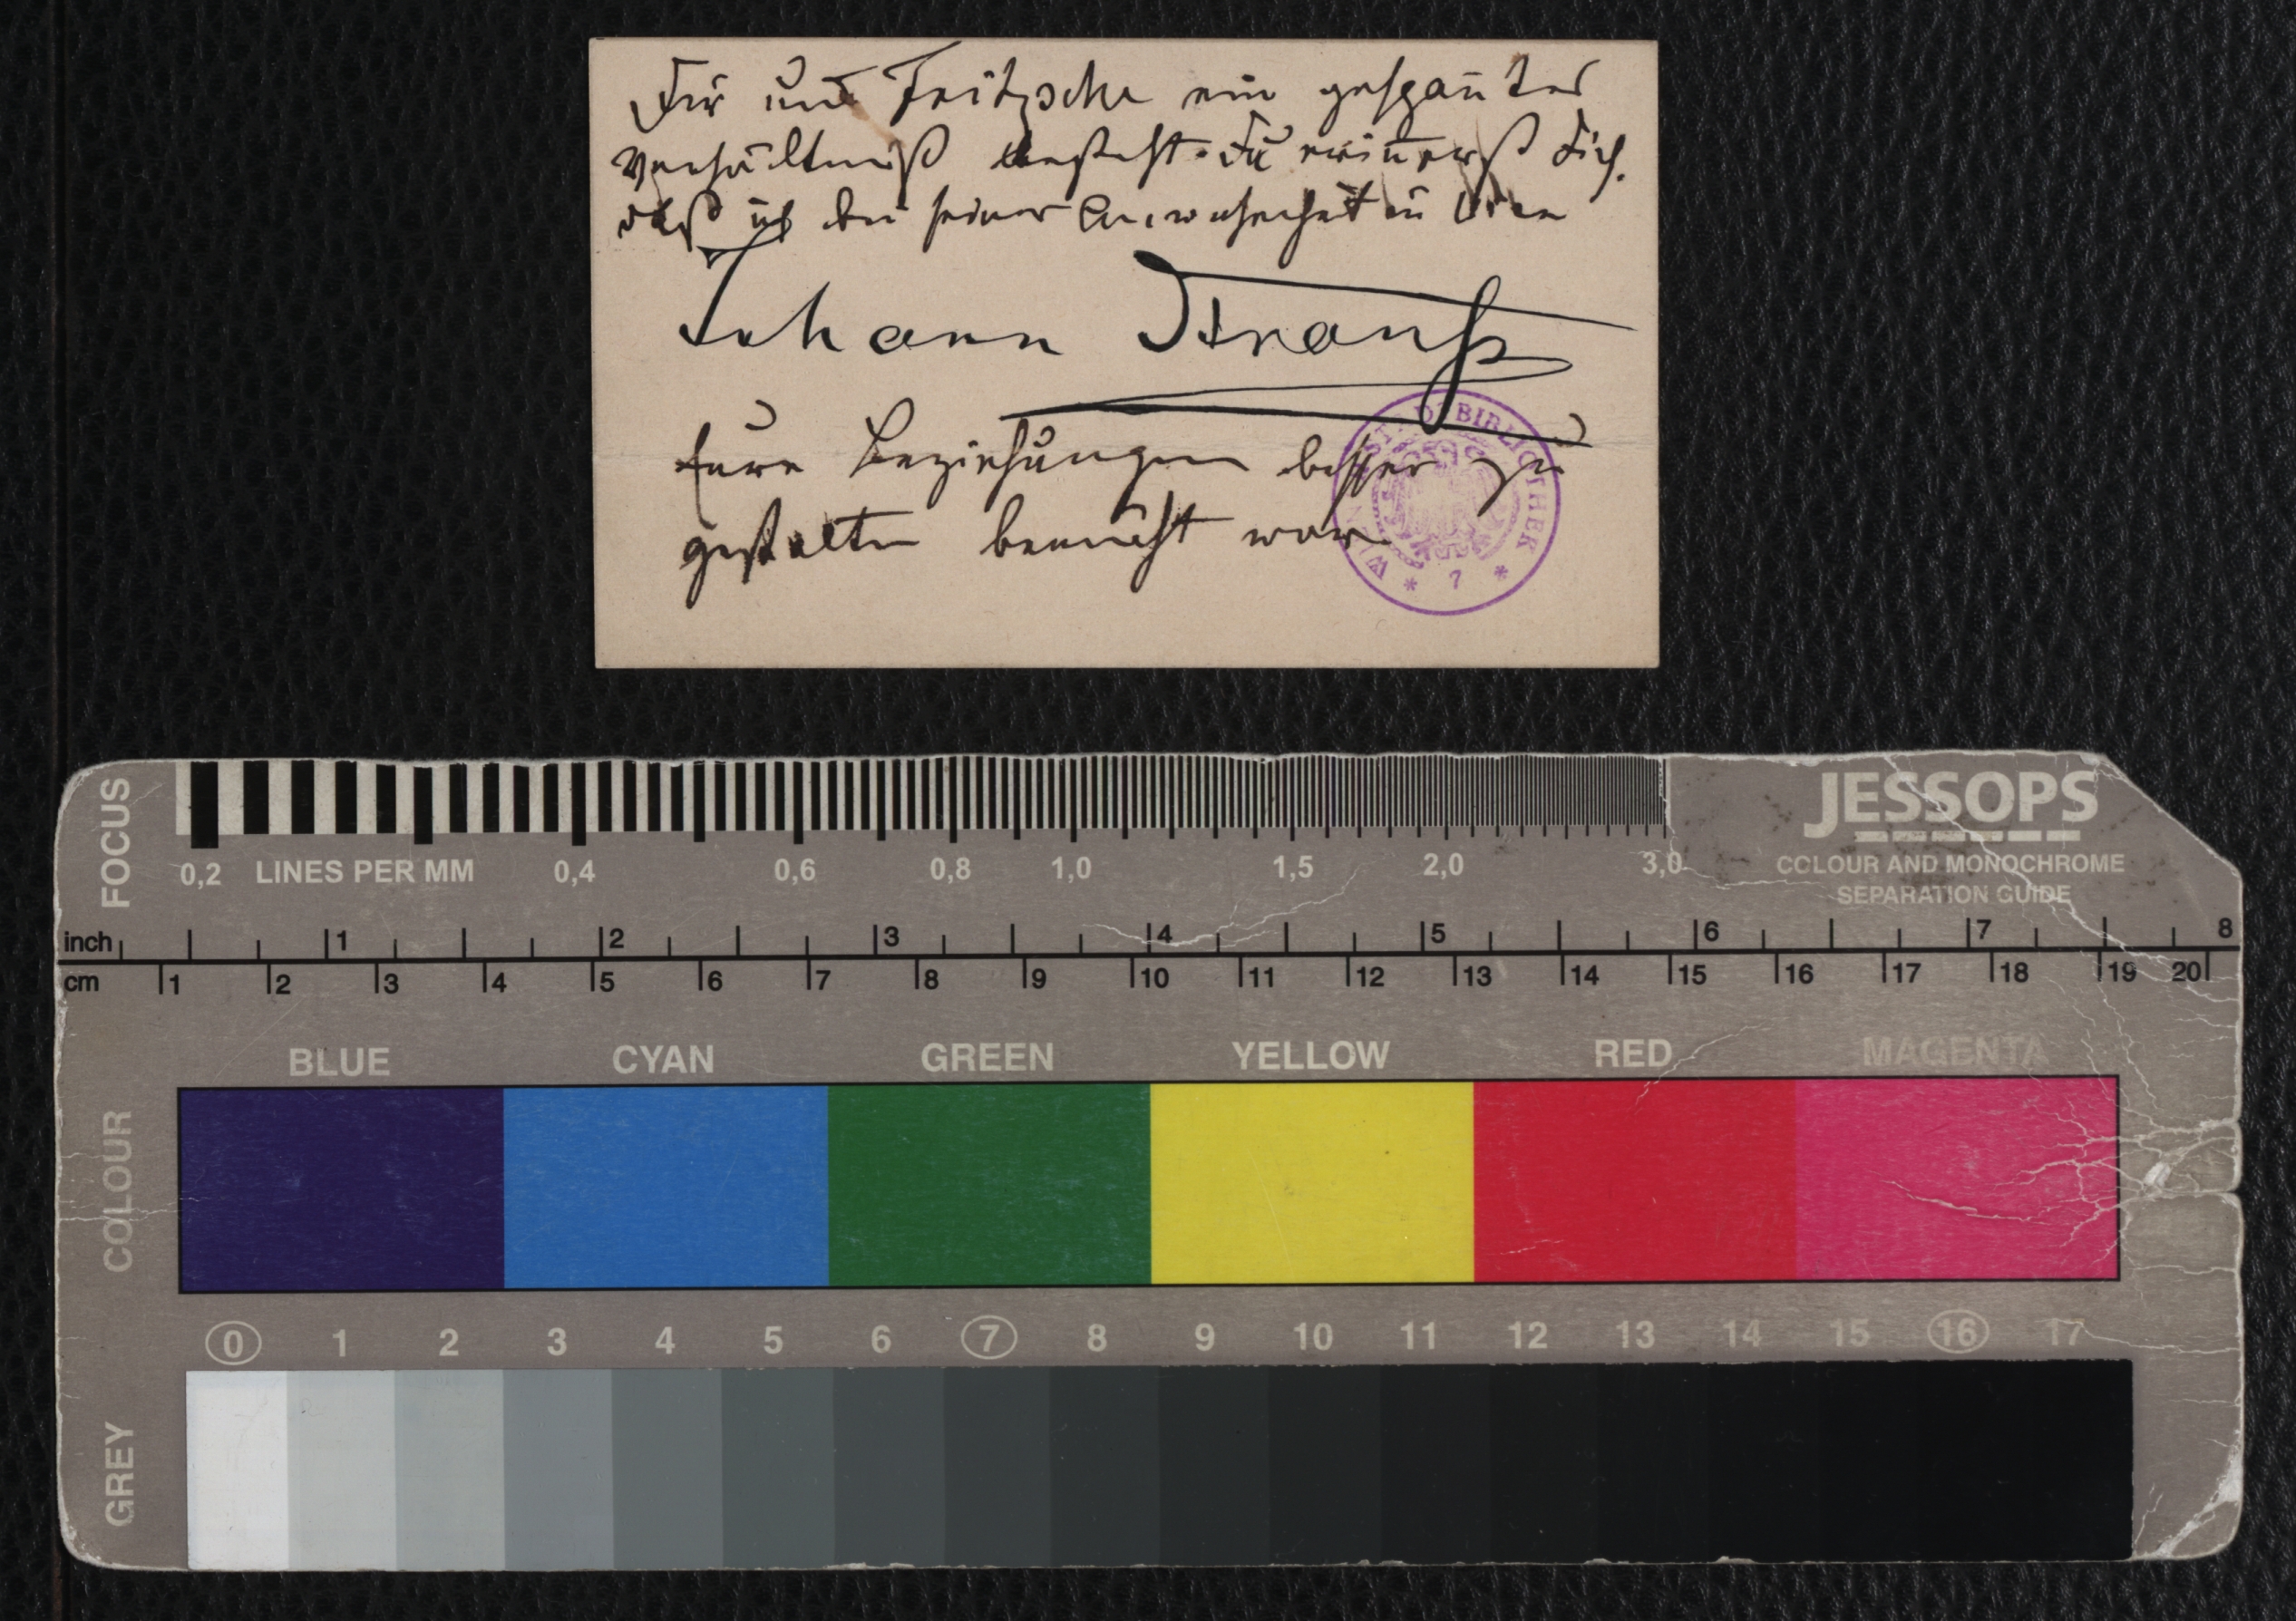 Dir und Fritzsche ein gespañter
Verhältniß besteht. Du eriñerst Dich,
daß ich bei seiner Anwesenheit in Wien
Johann Strauß
Eure Beziehungen besser zu
gestalten bemüht war.
WIEN STADTBIBLIOTHEK
* 7 *
FOCUS
0,2 LINES PER MM 0,4 0,6 0,8 1,0 1,5 2,0 3,0
JESSOPS
COLOUR AND MONOCHROME
SEPARATION GUIDE
inch 1 2 3 4 5 6 7 8
cm 1 2 3 4 5 6 7 8 9 10 11 12 13 14 15 16 17 18 19 20
BLUE CYAN GREEN YELLOW RED MAGENTA
COLOUR
0 1 2 3 4 5 6 7 8 9 10 11 12 13 14 15 16 17
GREY